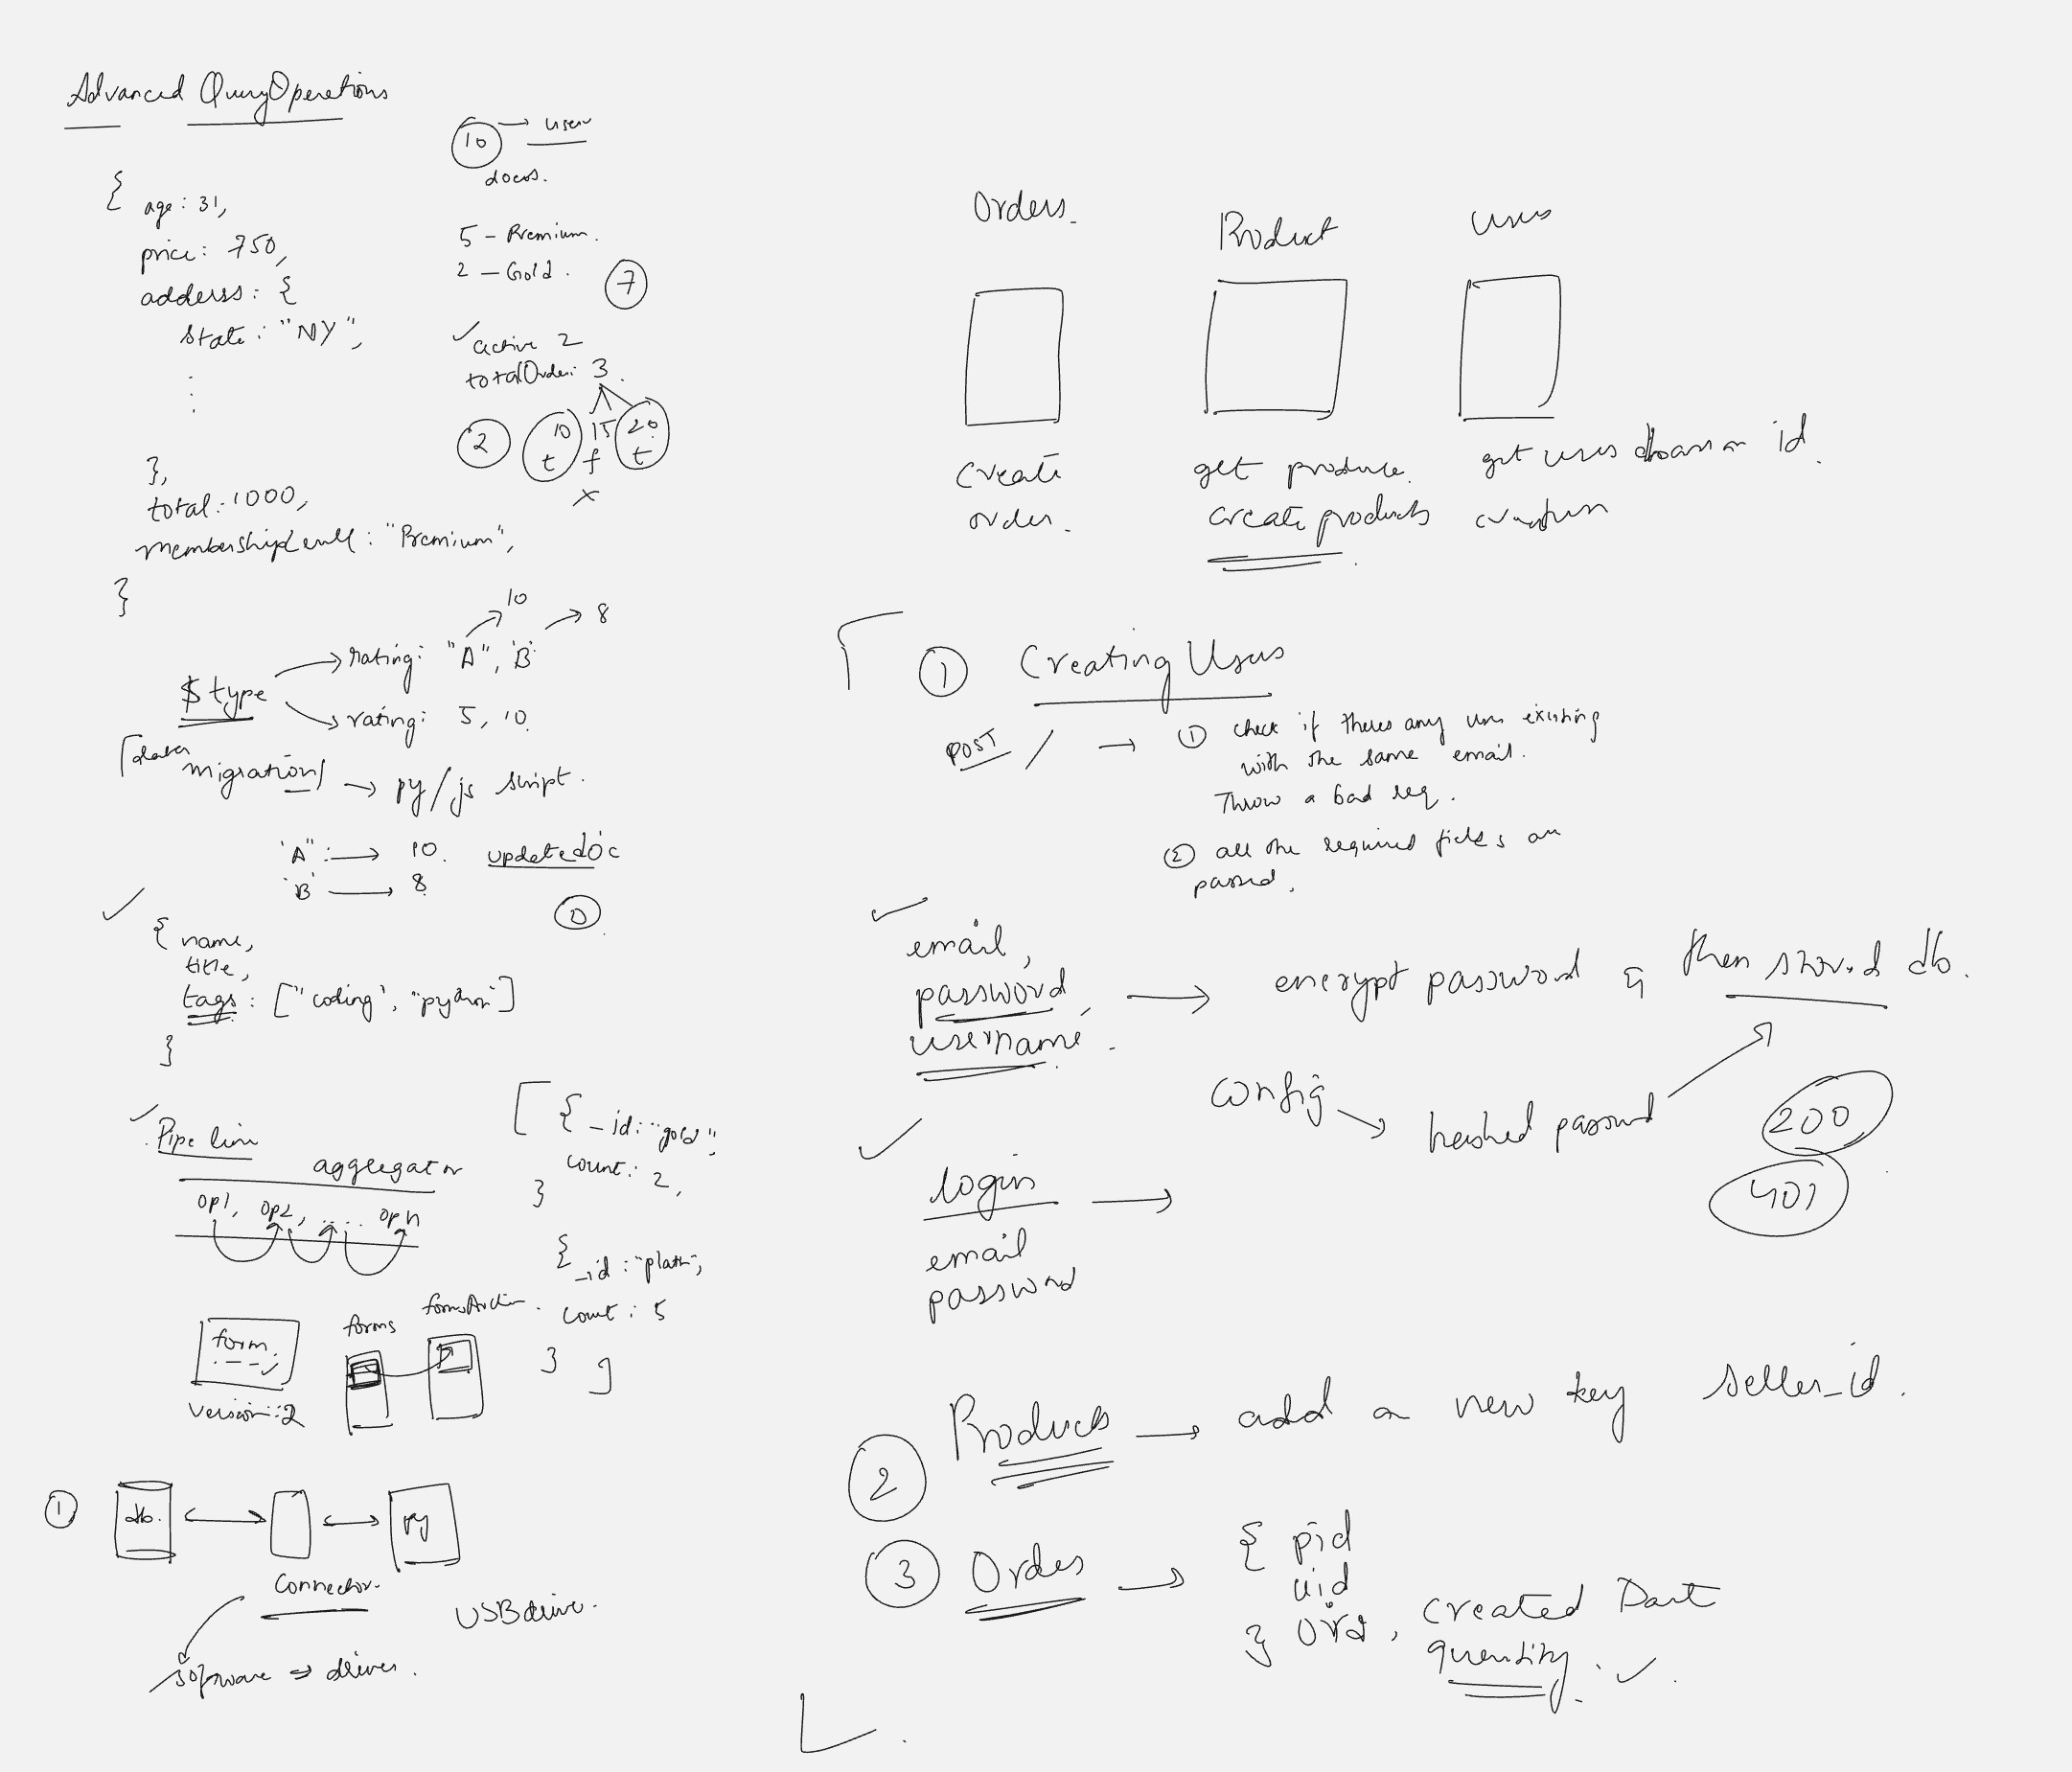 Advanced Query Operations
10 → user
docos.
{ age: 31,
price: 750,
adderss: {
State: "NY",
},
total: 1000,
membershipLevel: "Premium",
}
5 - Premium.
2 - Gold.
7
✓ active 2
totalOrder: 3.
2
10 15 20
t f t
x
10
8
$type
rating: "A", 'B'
rating: 5, 10.
migration → py/js script.
"A" → 10. updatedoc
'B' → 8
0
✓
{ name,
title,
tags: ["coding", "python"]
}
✓ Pipe line
aggregator
op1, op2, ..... opn
[ { _id: "gold",
count: 2,
}
{ _id: "platn",
count: 5
} ]
form
version: 2
forms
1
db. ↔ ↔ py
Connector.
USB drive.
software → driver.
Orders.
Product
users
create
order.
get produce.
create products
get users on id.
1 Creating Users
POST / → 1 check if theres any user existing
with the same email.
Throw a bad req.
2 all the required fields are
passed.
✓
email,
password, → encrypt password & then stored db.
username.
config → hashed password
200
401
✓
login →
email
password
2 Products → add a new key seller_id.
3 Orders → { pid
uid
} Ord, created
quantity. ✓